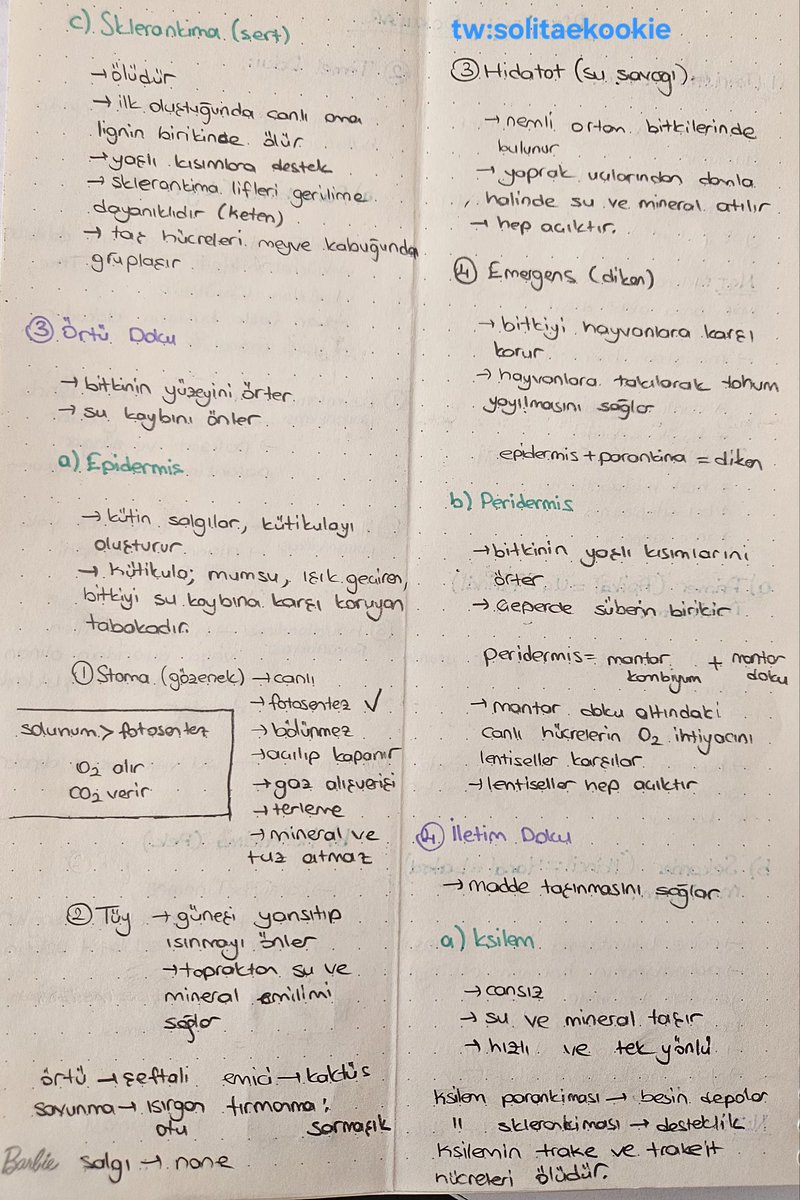 c) Sklerankima (sert)
→ ölüdür
→ ilk oluştuğunda canlı ama
lignin birikince ölür
→ yaşlı kısımlara destek
→ sklerankima lifleri gerilime
dayanıklıdır (keten)
→ taş hücreleri meyve kabuğunda
gruplaşır
③ Örtü Doku
→ bitkinin yüzeyini örter
→ su kaybını önler
a) Epidermis
→ kütin salgılar, kütikulayı
oluşturur
→ Kütikula; mumsu, ışık geçiren,
bitkiyi su kaybına karşı koruyan
tabakadır.
① Stoma (gözenek) → canlı
→ fotosentez ✓
→ bölünmez
→ açılıp kapanır
→ gaz alışverişi
→ terleme
→ mineral ve
tuz atmaz
solunum > fotosentez
O2 alır
CO2 verir
② Tüy → güneşi yansıtıp
ısınmayı önler
→ topraktan su ve
mineral emilimi
sağlar
örtü → şeftali emici → kaktüs
savunma → ısırgan otu tırmanma: sarmaşık
Barbie salgı → nane
tw:solitaekookie
③ Hidatot (su savağı)
→ nemli ortam bitkilerinde
bulunur
→ yaprak uçlarından damla
halinde su ve mineral atılır
→ hep açıktır.
④ Emergens (diken)
→ bitkiyi hayvanlara karşı
korur
→ hayvanlara takılarak tohum
yayılmasını sağlar
epidermis + parankima = diken
b) Peridermis
→ bitkinin yaşlı kısımlarını
örter
→ çeperde süberin birikir
peridermis = mantar kambiyum + mantar doku
→ mantar doku altındaki
canlı hücrelerin O2 ihtiyacını
lentiseller karşılar
→ lentiseller hep açıktır
④ İletim Doku
→ madde taşınmasını sağlar
a) ksilem
→ cansız
→ su ve mineral taşır
→ hızlı ve tek yönlü
ksilem parankiması → besin depolar
" sklerankiması → desteklik
ksilemin trake ve trakeit
hücreleri ölüdür.